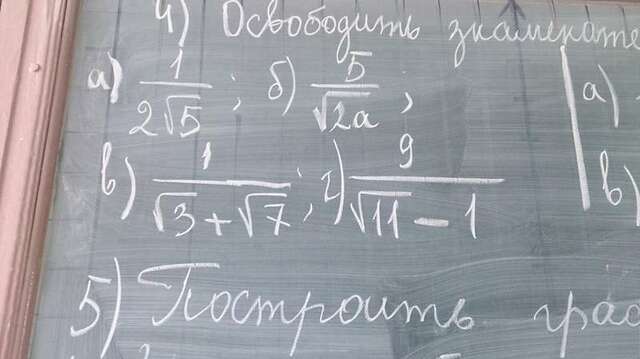 4) Освободить знаменате
а) 1/(2√5); б) 5/√(2a); а)
в) 1/(√3+√7); г) 9/(√11 - 1) в)
5) Построить гра